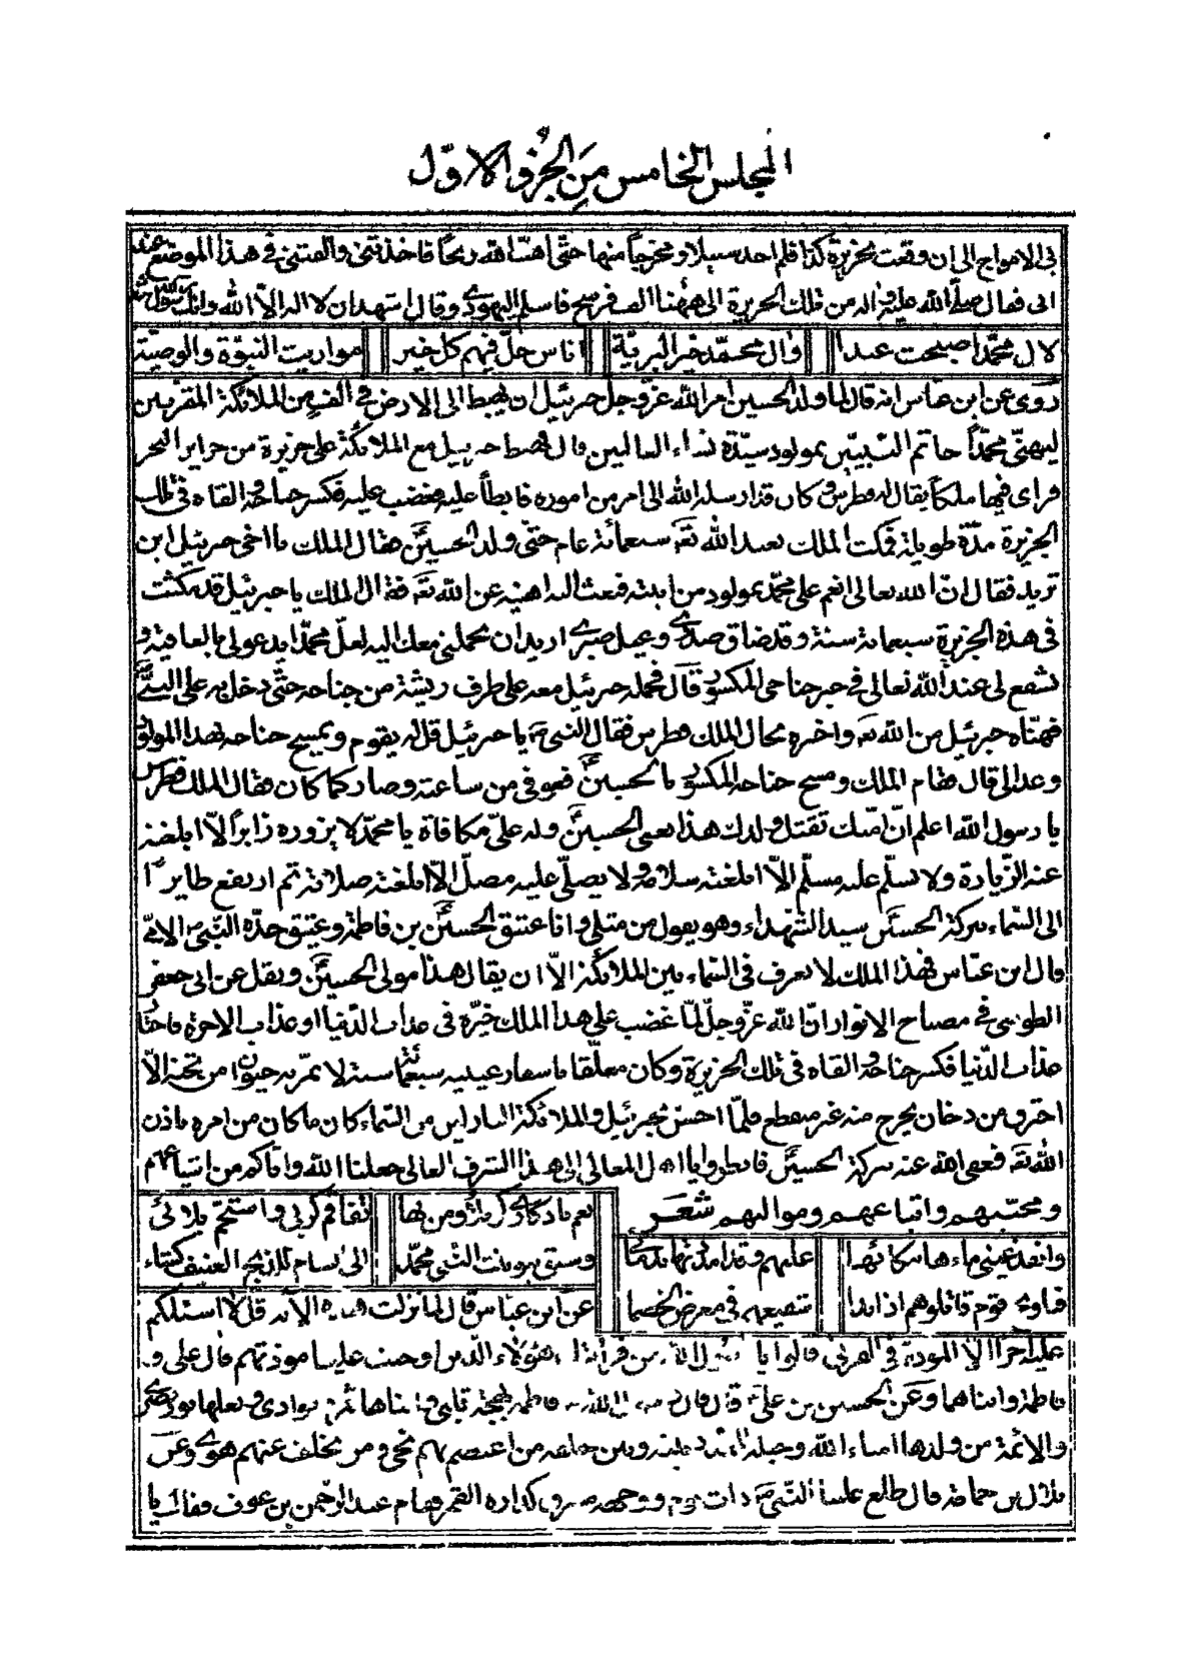 المجلس الخامس من الجزو الاول
بى الامواج الى ان وقعت بجزيرة كذا فلم اجد سبيلا ومخرجاً منها حتى اهت الله ريحا فاخذتنى والقتنى فى هذا الموضع عند
ابى فقال صلى الله عليه واله من تلك الجزيرة الى ههنا الف فرسخ فاسلم اليهودى وقال اشهد ان لا اله الا الله وانك رسول الله
لال محمد اصبحت عبدا وال محمد خير البرية اناس حل فيهم كل خير مواريث النبوة والوصية
روى عن ابن عباس انه قال لما ولد الحسين امر الله عز وجل جبرئيل ان يهبط الى الارض فى الف من الملائكة المقربين
ليهنى محمداً خاتم النبيين بمولود سيدة نساء العالمين قال فهبط جبرئيل مع الملائكة على جزيرة من جزاير البحر
فراى فيها ملكا يقال له فطرس وكان قد ارسله الله الى امر من اموره فابطأ عليه فغضب عليه فكسر جناحه والقاه فى تلك
الجزيرة مدة طويلة فمكث الملك يعبد الله تع سبعمائة عام حتى ولد الحسين فقال الملك يا اخى جبرئيل اين
تريد فقال ان الله تعالى انعم على محمد بمولود من ابنته فبعث اليه اهنيه عن الله تع فقال الملك يا جبرئيل قد مكثت
فى هذه الجزيرة سبعمائة سنة وقد ضاق صدرى وعيل صبرى اريد ان تحملنى معك اليه لعل محمدا يدعو لى بالعافية و
يشفع لى عند الله تعالى فى جبر جناحى المكسور قال فحمله جبرئيل معه على طرف ريشة من جناحه حتى دخل به على النبى
فهناه جبرئيل من الله تع واخبره بحال الملك فطرس فقال النبى ص يا جبرئيل قل له يقوم ويمسح جناحه بهذا المولود
وعد الى قال فقام الملك ومسح جناحه المكسور بالحسين فعوفى من ساعته وصار كما كان فقال الملك فطرس
يا رسول الله اعلم ان امتك تقتل ولدك هذا يعنى الحسين وله على مكافاة يا محمد لا يزوره زايراً الا ابلغته
عنه الزيارة ولا يسلم عليه مسلم الا ابلغته سلامه ولا يصلى عليه مصل الا ابلغته صلاته ثم ارتفع طايراً
الى السماء ببركة الحسين سيد الشهداء وهو يقول من مثلى وانا عتيق الحسين بن فاطمة وعتيق جده النبى الامى
قال ابن عباس فهذا الملك لا يعرف فى السماء بين الملائكة الا ان يقال هذا مولى الحسين ونقل عن ابى جعفر
الطوسى فى مصباح الانوار ان الله عز وجل لما غضب على هذا الملك خيره فى عذاب الدنيا او عذاب الاخرة فاختار
عذاب الدنيا فكسر جناحه والقاه فى تلك الجزيرة وكان معلقا باشفار عينيه سبعمائة سنة لا تمر به حيوان من تحته الا
احترق من دخان يخرج منه غير منقطع فلما احسن بجبرئيل والملائكة النازلين من السماء كان ما كان من امره باذن
الله تع فعفى الله عنه ببركة الحسين فانظروا يا اهل المعالى الى هذا الشرف العالى جعلنا الله واياكم من اشياعهم
ومحبيهم واتباعهم ومواليهم شعر نعم باد كادى كربلا ومن بها تفاقم كربى واستخم بلائى
وانفذ عينى ماء هاببكائها عليهم وقد امددتها بدمائى وسبق بنو بنت النبى محمد الى شام للزنيم العنيف كشاء
فاوه قوم قاتلوهم اذا بدا شفيعهم فى معرض الخصما عن ابن عباس قال لما نزلت هذه الاية قل لا اسئلكم
عليه اجرا الا المودة فى القربى قالوا يا رسول الله من قرابتك هؤلاء الذين اوجبت علينا مودتهم قال على و
فاطمة وابناهما وعن الحسين بن على قال قال رسول الله فاطمة بهجة قلبى وابناها ثمرة فؤادى وبعلها نور بصرى
والائمة من ولدها امناء الله وحبله الممدود بينه وبين خلقه من اعتصم بهم نجى ومن تخلف عنهم هوى وعن
بلال بن حمامة قال طلع علينا النبى ص ذات يوم ووجهه مشرق كدارة القمر فقام عبد الرحمن بن عوف فقال يا